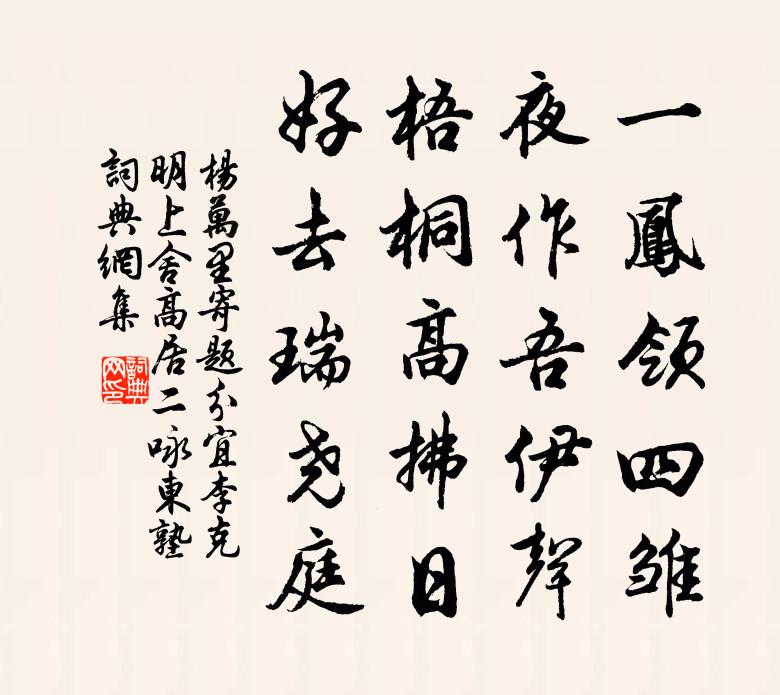 一鳳領四雛
夜作吾伊聲
梧桐高拂日
好去瑞尧庭
楊萬里寄題分宜李克
明上舍高居二咏東塾
詞典網集
詞典
网印